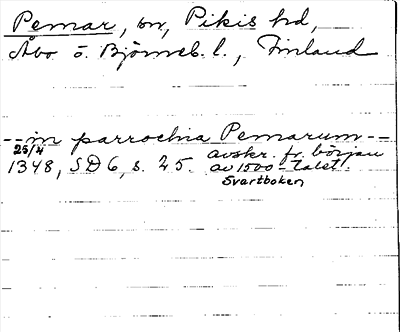 Pemar, sn, Pikis hd,
Åbo o. Björneb. l., Finland
-- in parrochia Pemarum --
25/4
1348, SD 6, s. 25. avskr. fr. början
av 1500-talet.
Svartboken